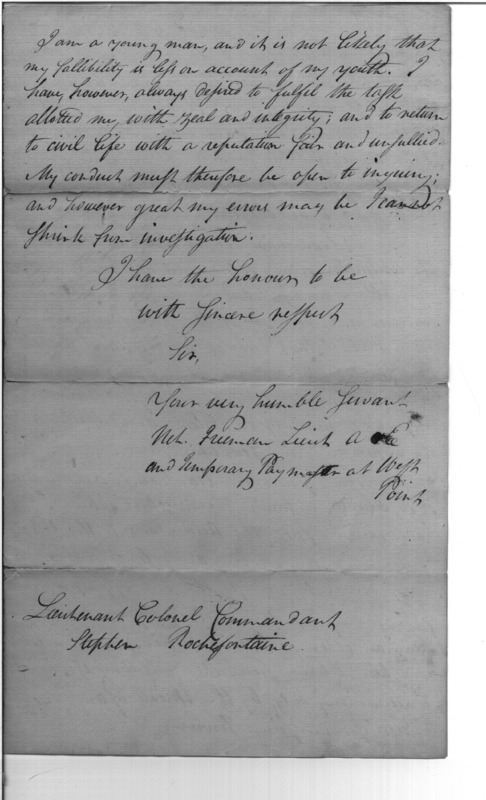 I am a young man, and it is not likely that
my fallibility is less on account of my youth. I
have, however, always desired to fulfil the task
allotted my, with zeal and integrity; and to return
to civil life with a reputation fair and unsullied.
My conduct must therefore be open to inquiry;
and however great my errors may be I cannot
shrink from investigation.
I have the honour to be
with sincere respect
Sir,
Your very humble Servant
Neh. Freeman Lieut A &
and temporary Paymaster at West
Point
Lieutenant Colonel Commandant
Stephen Rochefontaine.